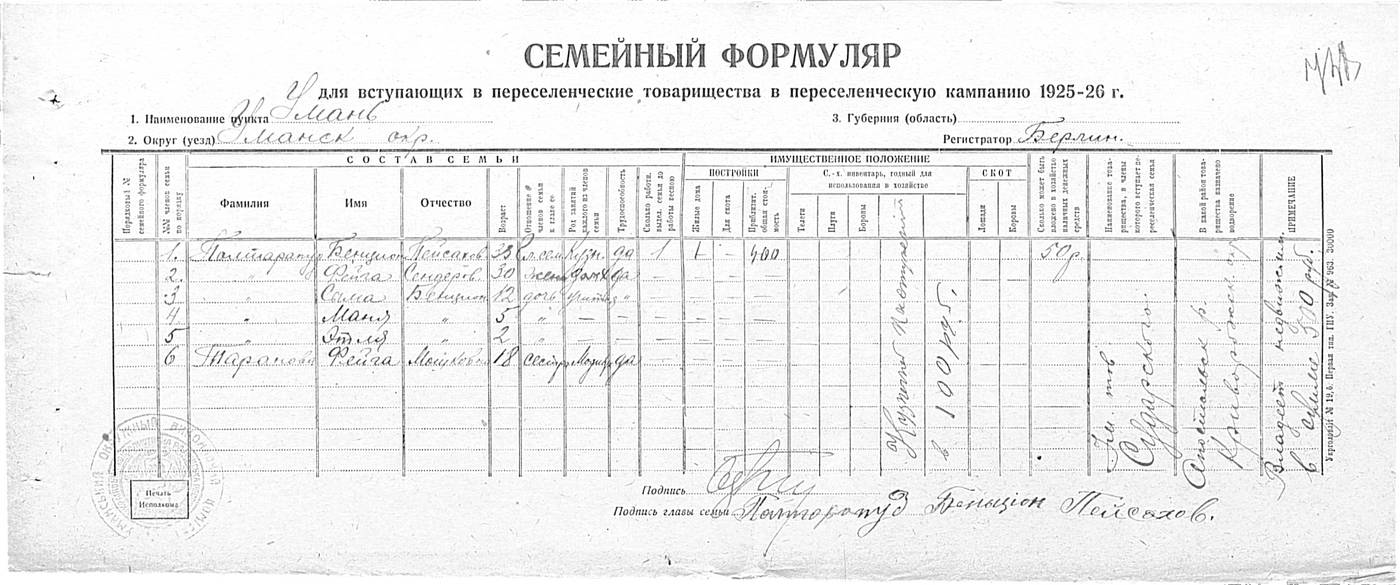 СЕМЕЙНЫЙ ФОРМУЛЯР
для вступающих в переселенческие товарищества в переселенческую кампанию 1925-26 г.
1. Наименование пункта Умань
3. Губерния (область)
2. Округ (уезд) Уманск окр.
Регистратор Берлин.
СОСТАВ СЕМЬИ
ИМУЩЕСТВЕННОЕ ПОЛОЖЕНИЕ
ПОСТРОЙКИ
С.-х. инвентарь, годный для использования в хозяйстве
СКОТ
Порядковый № семейного формуляра
№№ членов семьи по порядку
Фамилия
Имя
Отчество
Возраст
Отношение членов семьи к главе ее
Род занятий каждого из членов семьи
Трудоспособность
Сколько работн. выдел. семья до работы весною
Жилые дома
Для скота
Приблизит. общая стоимость
Телеги
Плуги
Бороны
Лошади
Коровы
Сколько может быть вложено в хозяйство наличных денежных средств
Наименование товарищества, в члены которого вступает переселенческая семья
В какой район товарищества назначено водворение
ПРИМЕЧАНИЕ
1. Бенцион Пейсахов 38 гл. сем Кузн. да 1 1 — 400 50 р
2. " Фейга Сендеров 30 жена домх да
3 " Сыма Бенцион 12 дочь "
4 " Маня " 5 " —
5 " Этля " 2 "
6 Фейга Мошковна 18 сестра да
Кузнечн
в 100 руб.
Им. тов
Сударского
Апостольск р.
Криворожск окр
Владеет недвижим.
в сумме 300 руб.
Ужголовлит № 19, б. Первая тип. ГПУ. Зак. № 963. 30000
Печать
Исполкома
Подпись
Подпись главы семьи Бенцион Пейсахов.